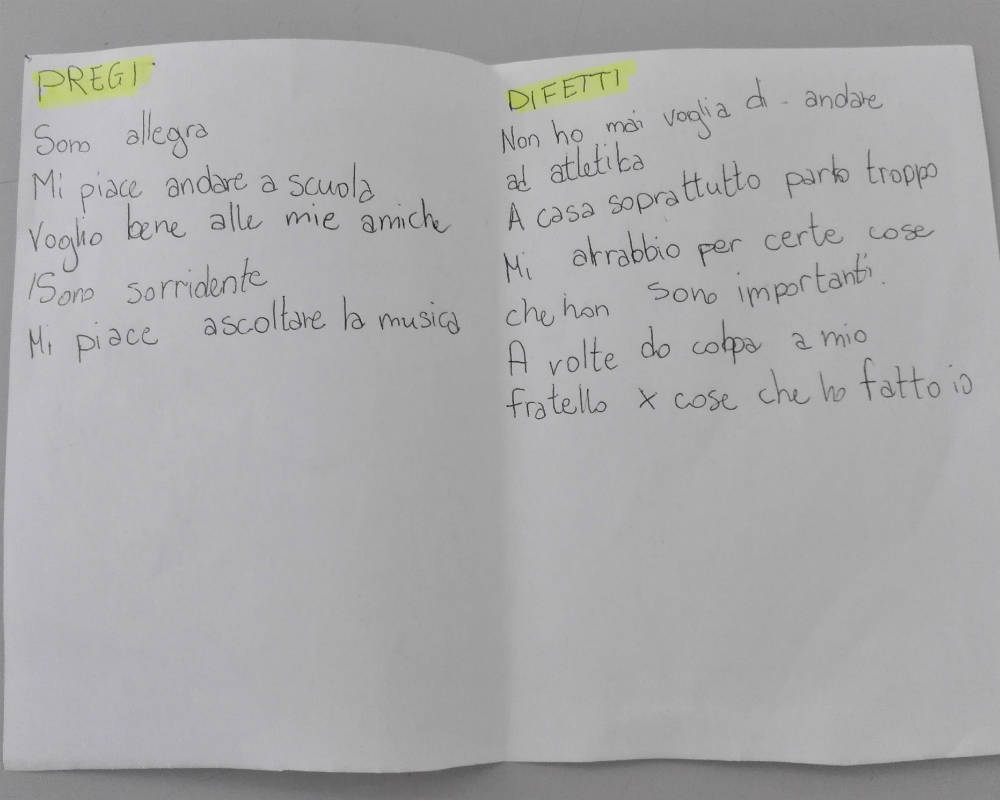 PREGI
Sono allegra
Mi piace andare a scuola
Voglio bene alle mie amiche
Sono sorridente
Mi piace ascoltare la musica
DIFETTI
Non ho mai voglia di andare
ad atletica
A casa soprattutto parlo troppo
Mi arrabbio per certe cose
che non sono importanti.
A volte do colpa a mio
fratello x cose che ho fatto io